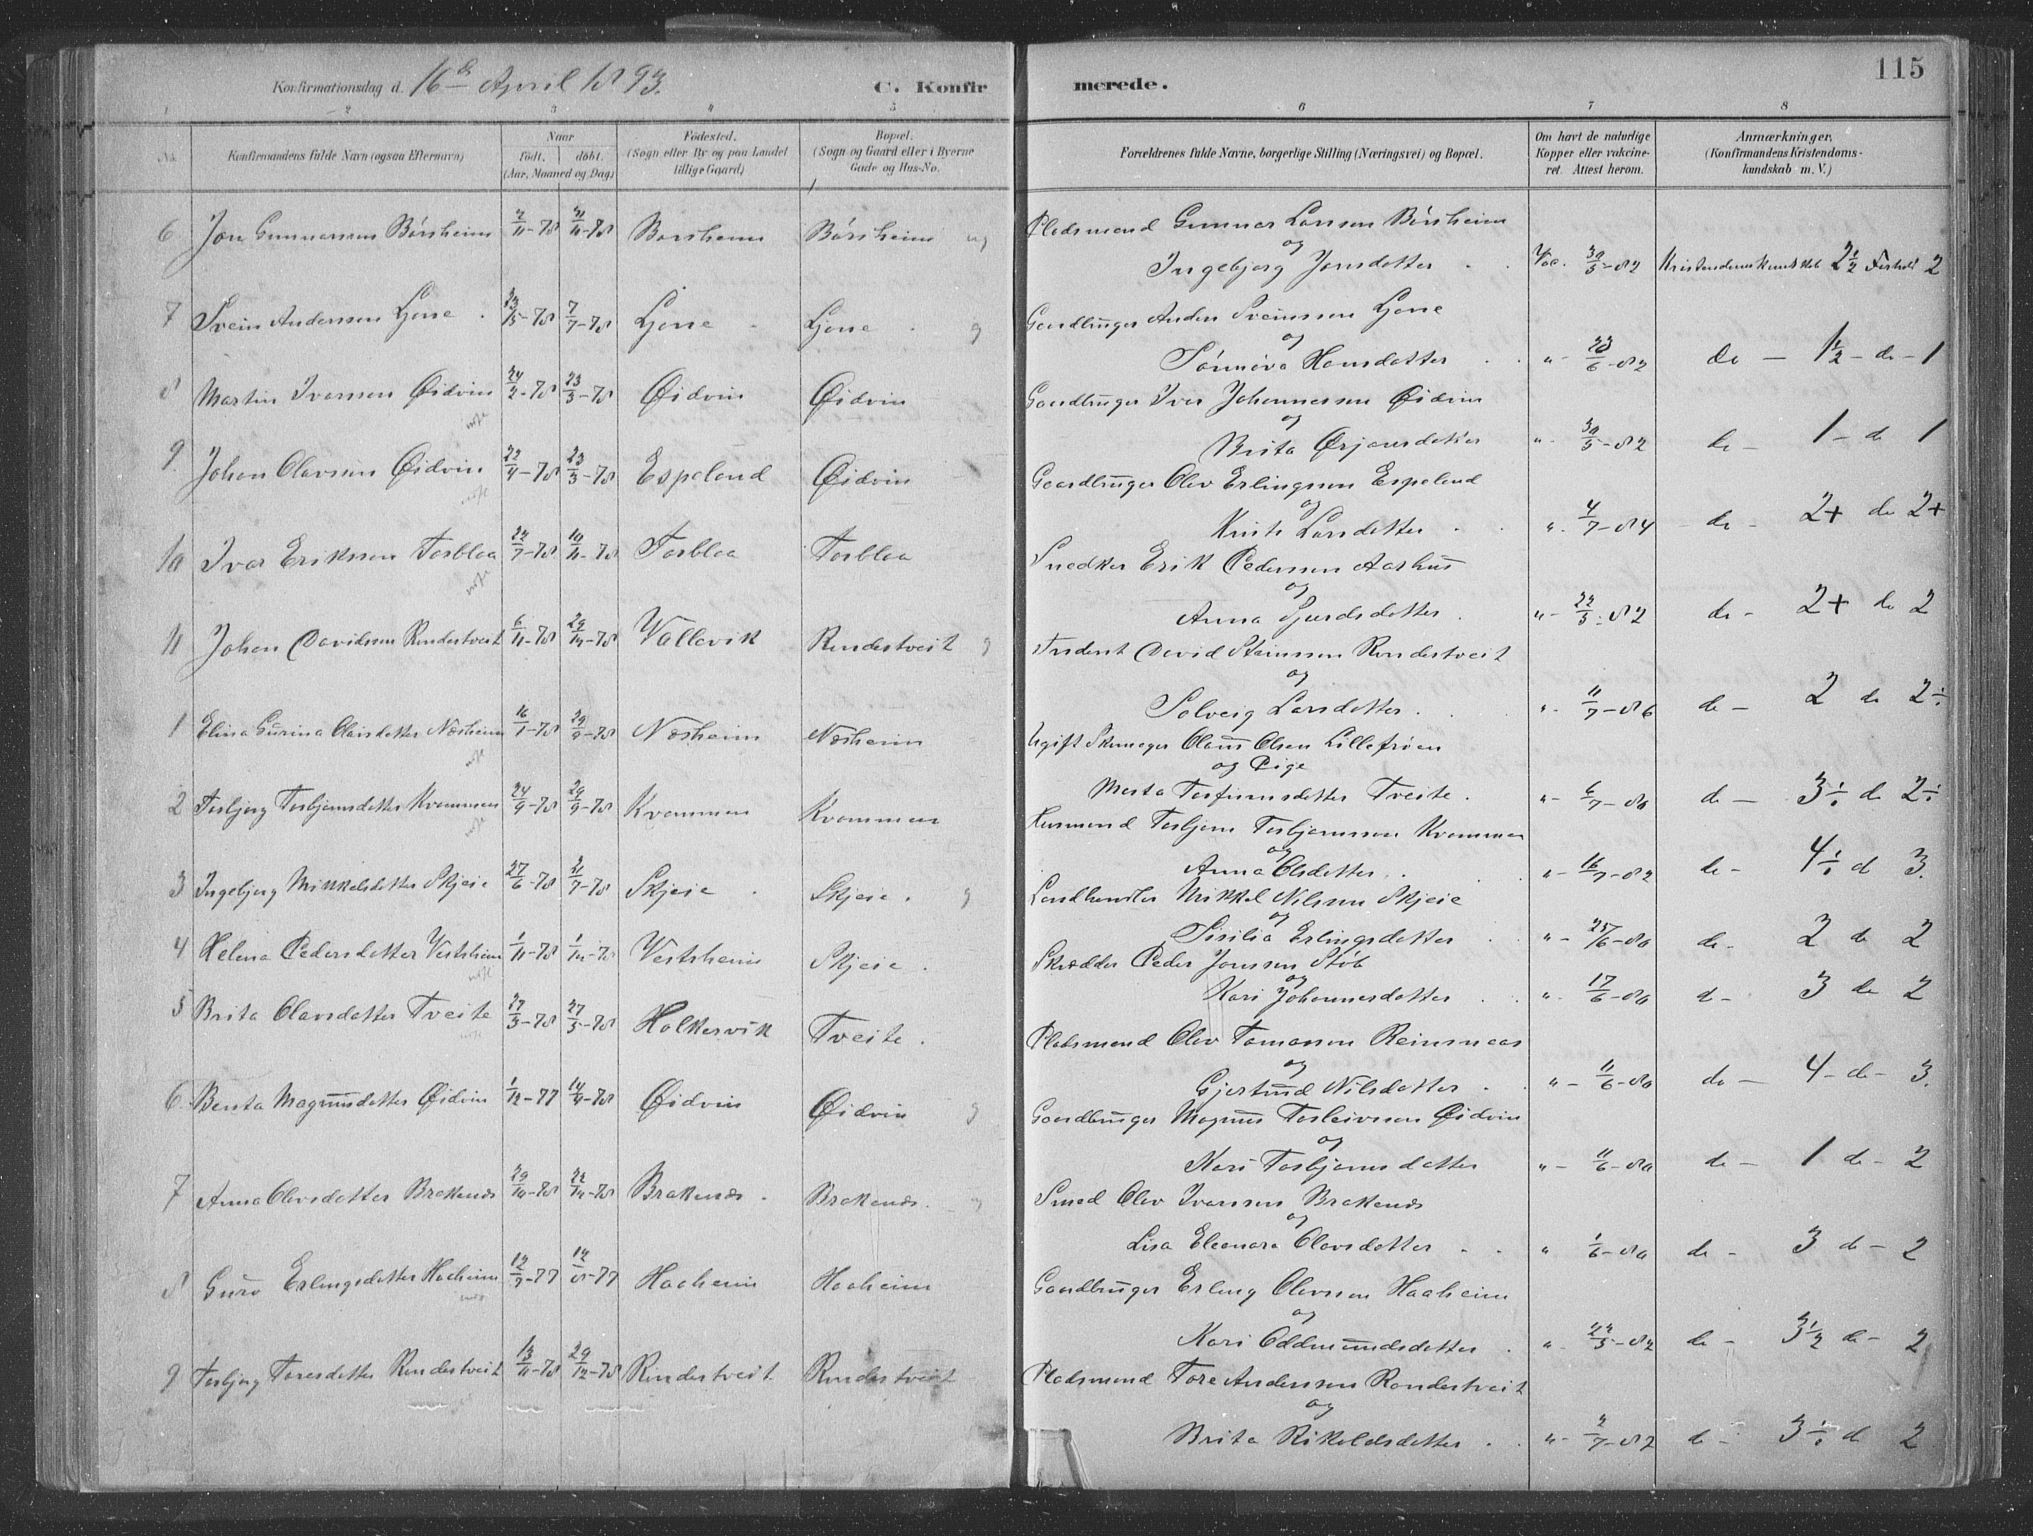 115
Konfirmationsdag d. 16de April 1893.
C. Konfirmerede.
1 2 3 4 5 6 7 8
No.
Konfirmandens fulde Navn (ogsaa Efternavn)
Naar
født, døbt,
(Aar, Maaned og Dag)
Fødested.
(Sogn eller By og paa Landet
tillige Gaard)
Bopæl.
(Sogn og Gaard eller i Byerne
Gade og Hus-No.
Forældrenes fulde Navne, borgerlige Stilling (Næringsvei) og Bopæl.
Om havt de naturlige
Kopper eller vakcine-
ret. Attest herom.
Anmærkninger.
(Konfirmandens Kristendoms-
kundskab m. V.)
6 Jon Gunnarssen Børsheim Børsheim Børsheim Pladsmand Gunnar Larssen Børsheim
og
Ingebjørg Jonsdotter Vac. 30/5-82 Kristendomskundskab 2½ Forhold 2
7 Svein Anderssen Ljone 7/7-78 Ljone Ljone Gaardbruger Anders Sveinssen Ljone
og
Sønnøva Hansdotter " 23/6-82 do - 1½ - do - 1
8 Martin Ivarssen Øidvin 24/2-78 23/3-78 Øidvin Øidvin Gaardbruger Ivar Johannessen Øidvin
og
Brita Ørjansdotter " 30/5-82 do - 1 - do 1
9 Johan Olavssen Øidvin Espeland Øidvin Gaardbruger Olav Erlingssen Espeland
og
Larsdotter " 4/7-84 do - 2+ do 2+
10 Ivar Erikssen Torbloa Torbloa Torbloa Snedker Erik Pederssen Aarhus
og
Anna Sjurdsdotter " 22/5-82 do - 2+ do 2
11 Johan Davidssen Røndestveit 6/11-78 Vallevik Røndestveit David Steinssen Røndestveit
og
Solveig Larsdotter " 11/7-86 do - 2 do 2÷
1 Elina Gurina Olavsdotter Næsheim 29/9-78 Næsheim Næsheim Ugift Skomager Olaus Olsen Lillefrøen
og Pige
Marta Torfinnsdotter Tveite " 6/7-80 do - 3÷ do 2÷
2 Torbjørg Torbjørnsdotter Kvammen 24/9-78 29/9-78 Kvammen Kvammen Husmand Torbjørn Torbjørnssen Kvammen
og
Anna Olsdotter " 16/7-82 do - 4÷ do 3.
3 Ingebjørg Mikkelsdotter Skjeie 27/6-78 21/7-78 Skjeie Skjeie Landhandler Mikkel Nilssen Skjeie
og
Sisilia Erlingsdotter " 25/6-80 do - 2 do 2
4 Helena Pedersdotter Vestrheim 1/11-78 Vestrheim Skjeie Skrædder Peder Jonssen Støb
og
Kari Johannesdotter " 17/6-80 do - 3 do 2
5 Brita Olavsdotter Tveite 27/5-78 Holkesvik Tveite Pladsmand Olav Tomassen Reinsnaas
og
Gjertrud Nilsdotter " 11/6-80 do - 4 - do - 3.
6 Berita Magnusdotter Øidvin 1/12-77 14/4-78 Øidvin Øidvin Gaardbruger Magnus Torleivssen Øidvin
og
Kari Torbjørnsdotter " 11/6-80 do - 1 do - 2
7 Anna Olavsdotter Brakenæs Brakenæs Brakenæs Smed Olav Ivarssen Brakenæs
og
Lisa Eleonora Olavsdotter " 1/6-80 do - 3 do - 2
8 Guro Erlingsdotter Haaheim 12/7-77 12/8-77 Haaheim Haaheim Gaardbruger Erling Olavssen Haaheim
og
Kari Oddmundsdotter " 22/5-82 do - 3½ do - 2
9 Torbjørg Toresdotter Røndestveit 13/11-78 29/12-78 Røndestveit Røndestveit Pladsmand Tore Anderssen Røndestveit
og
Brita Rikoldsdotter " 2/7-82 do - 3÷ do 2